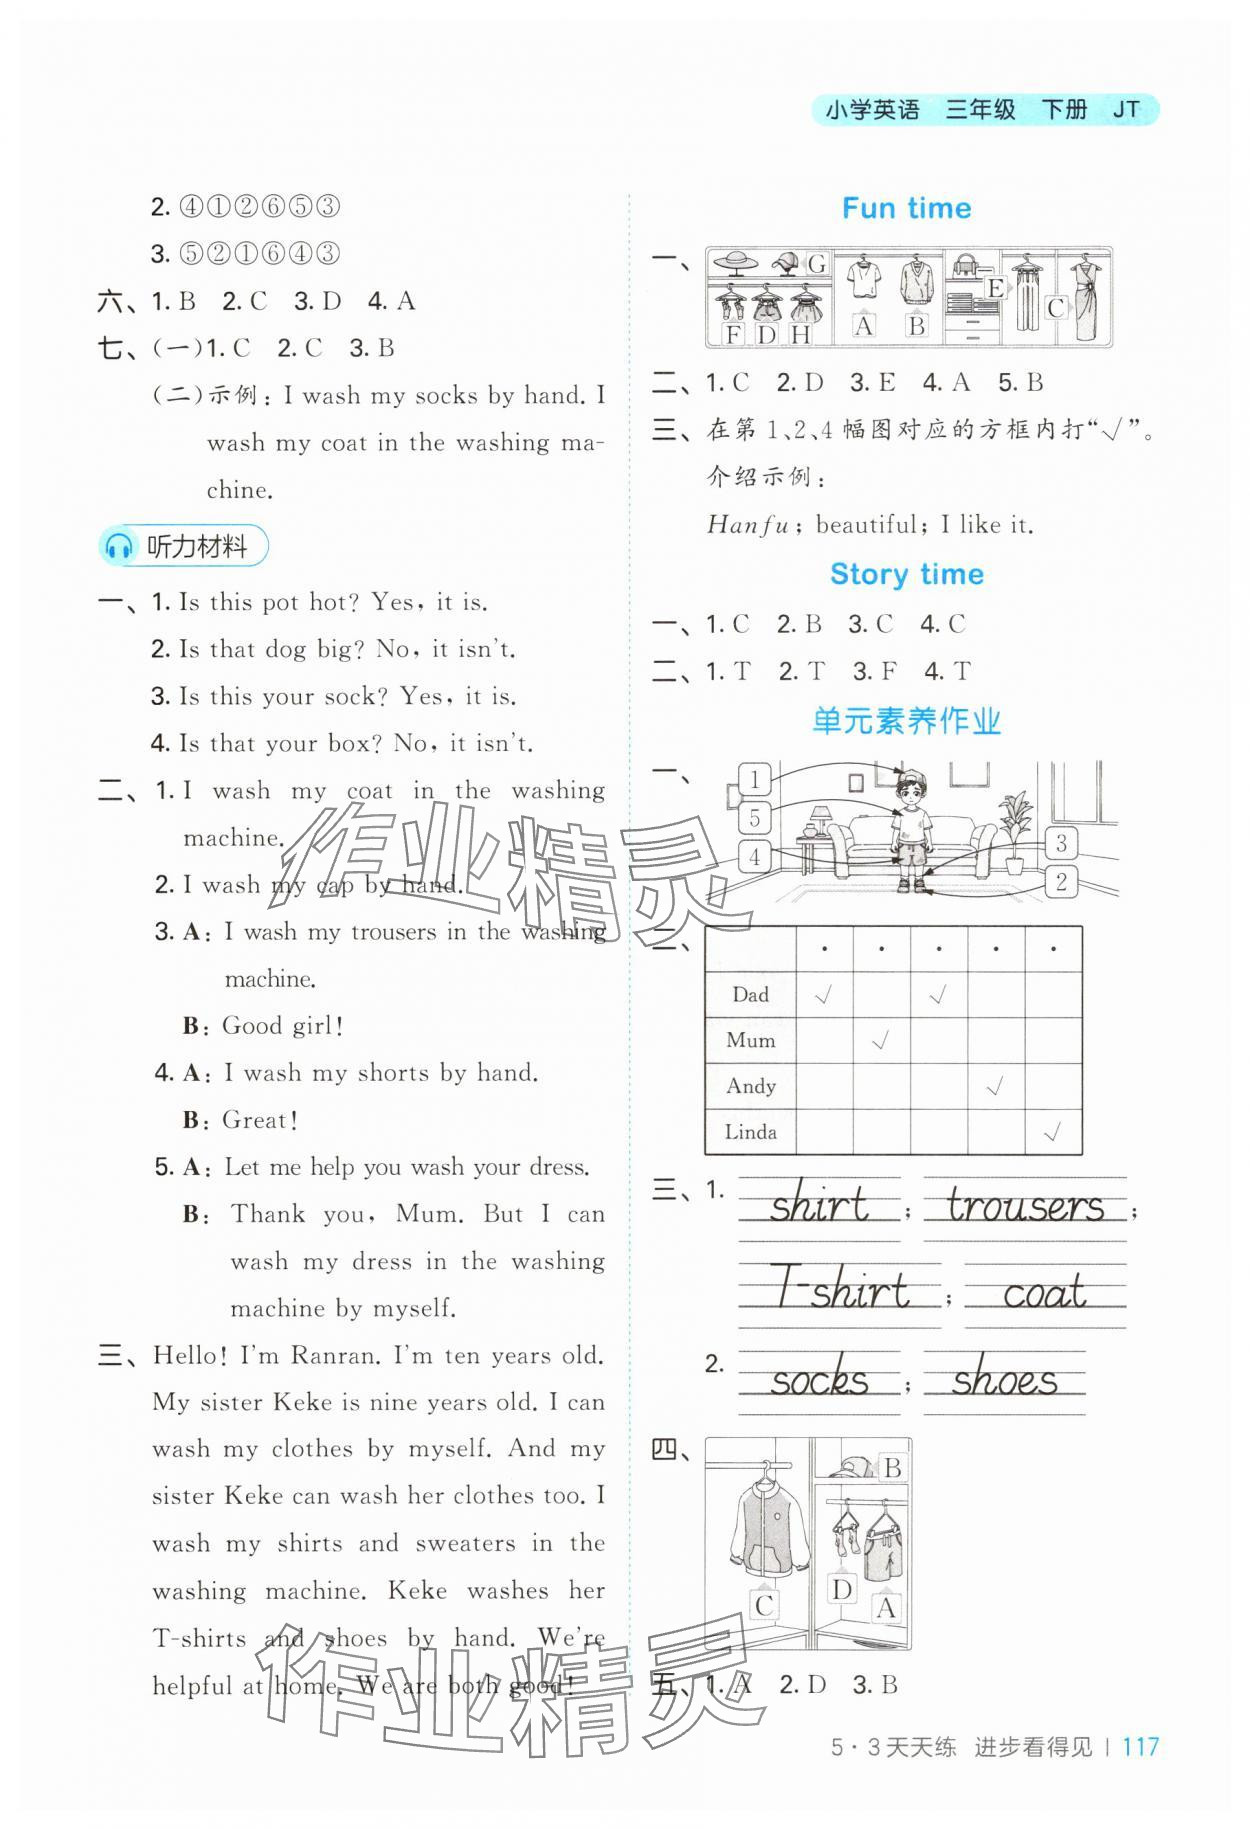 小学英语 三年级 下册 JT
2. ④①②⑥⑤③
3. ⑤②①⑥④③
六、1. B 2. C 3. D 4. A
七、(一)1. C 2. C 3. B
(二)示例: I wash my socks by hand. I
wash my coat in the washing ma-
chine.
听力材料
一、1. Is this pot hot? Yes, it is.
2. Is that dog big? No, it isn't.
3. Is this your sock? Yes, it is.
4. Is that your box? No, it isn't.
二、1. I wash my coat in the washing
machine.
2. I wash my cap by hand.
3. A: I wash my trousers in the washing
machine.
B: Good girl!
4. A: I wash my shorts by hand.
B: Great!
5. A: Let me help you wash your dress.
B: Thank you, Mum. But I can
wash my dress in the washing
machine by myself.
三、Hello! I'm Ranran. I'm ten years old.
My sister Keke is nine years old. I can
wash my clothes by myself. And my
sister Keke can wash her clothes too. I
wash my shirts and sweaters in the
washing machine. Keke washes her
T-shirts and shoes by hand. We're
helpful at home. We are both good!
Fun time
一、
G
E
C
F D H A B
二、1. C 2. D 3. E 4. A 5. B
三、在第 1、2、4 幅图对应的方框内打“√”。
介绍示例:
Hanfu; beautiful; I like it.
Story time
一、1. C 2. B 3. C 4. C
二、1. T 2. T 3. F 4. T
单元素养作业
一、
1
5
4
3
2
二、
Dad √ √
Mum √
Andy √
Linda √
三、1. shirt ; trousers ;
T-shirt ; coat
2. socks ; shoes
四、
B
C D A
五、1. A 2. D 3. B
5·3天天练 进步看得见 | 117
作业精灵
作业精灵